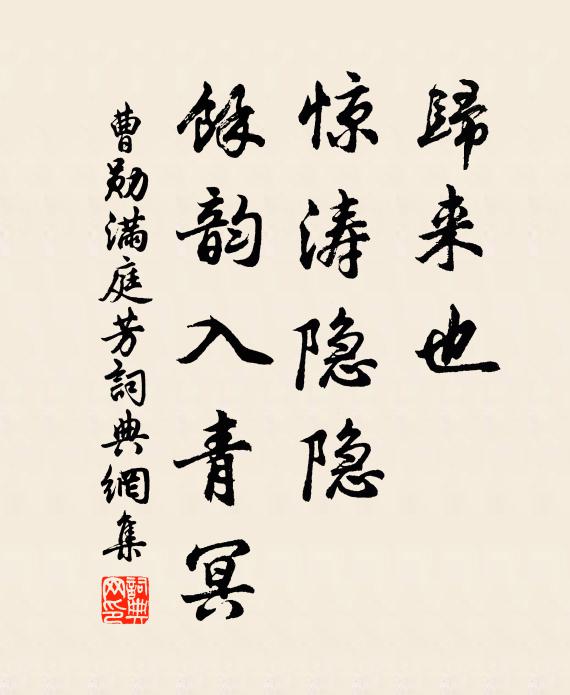 歸来也
惊涛隐隐
餘韵入青冥
曹勋满庭芳詞典網集
詞典网印